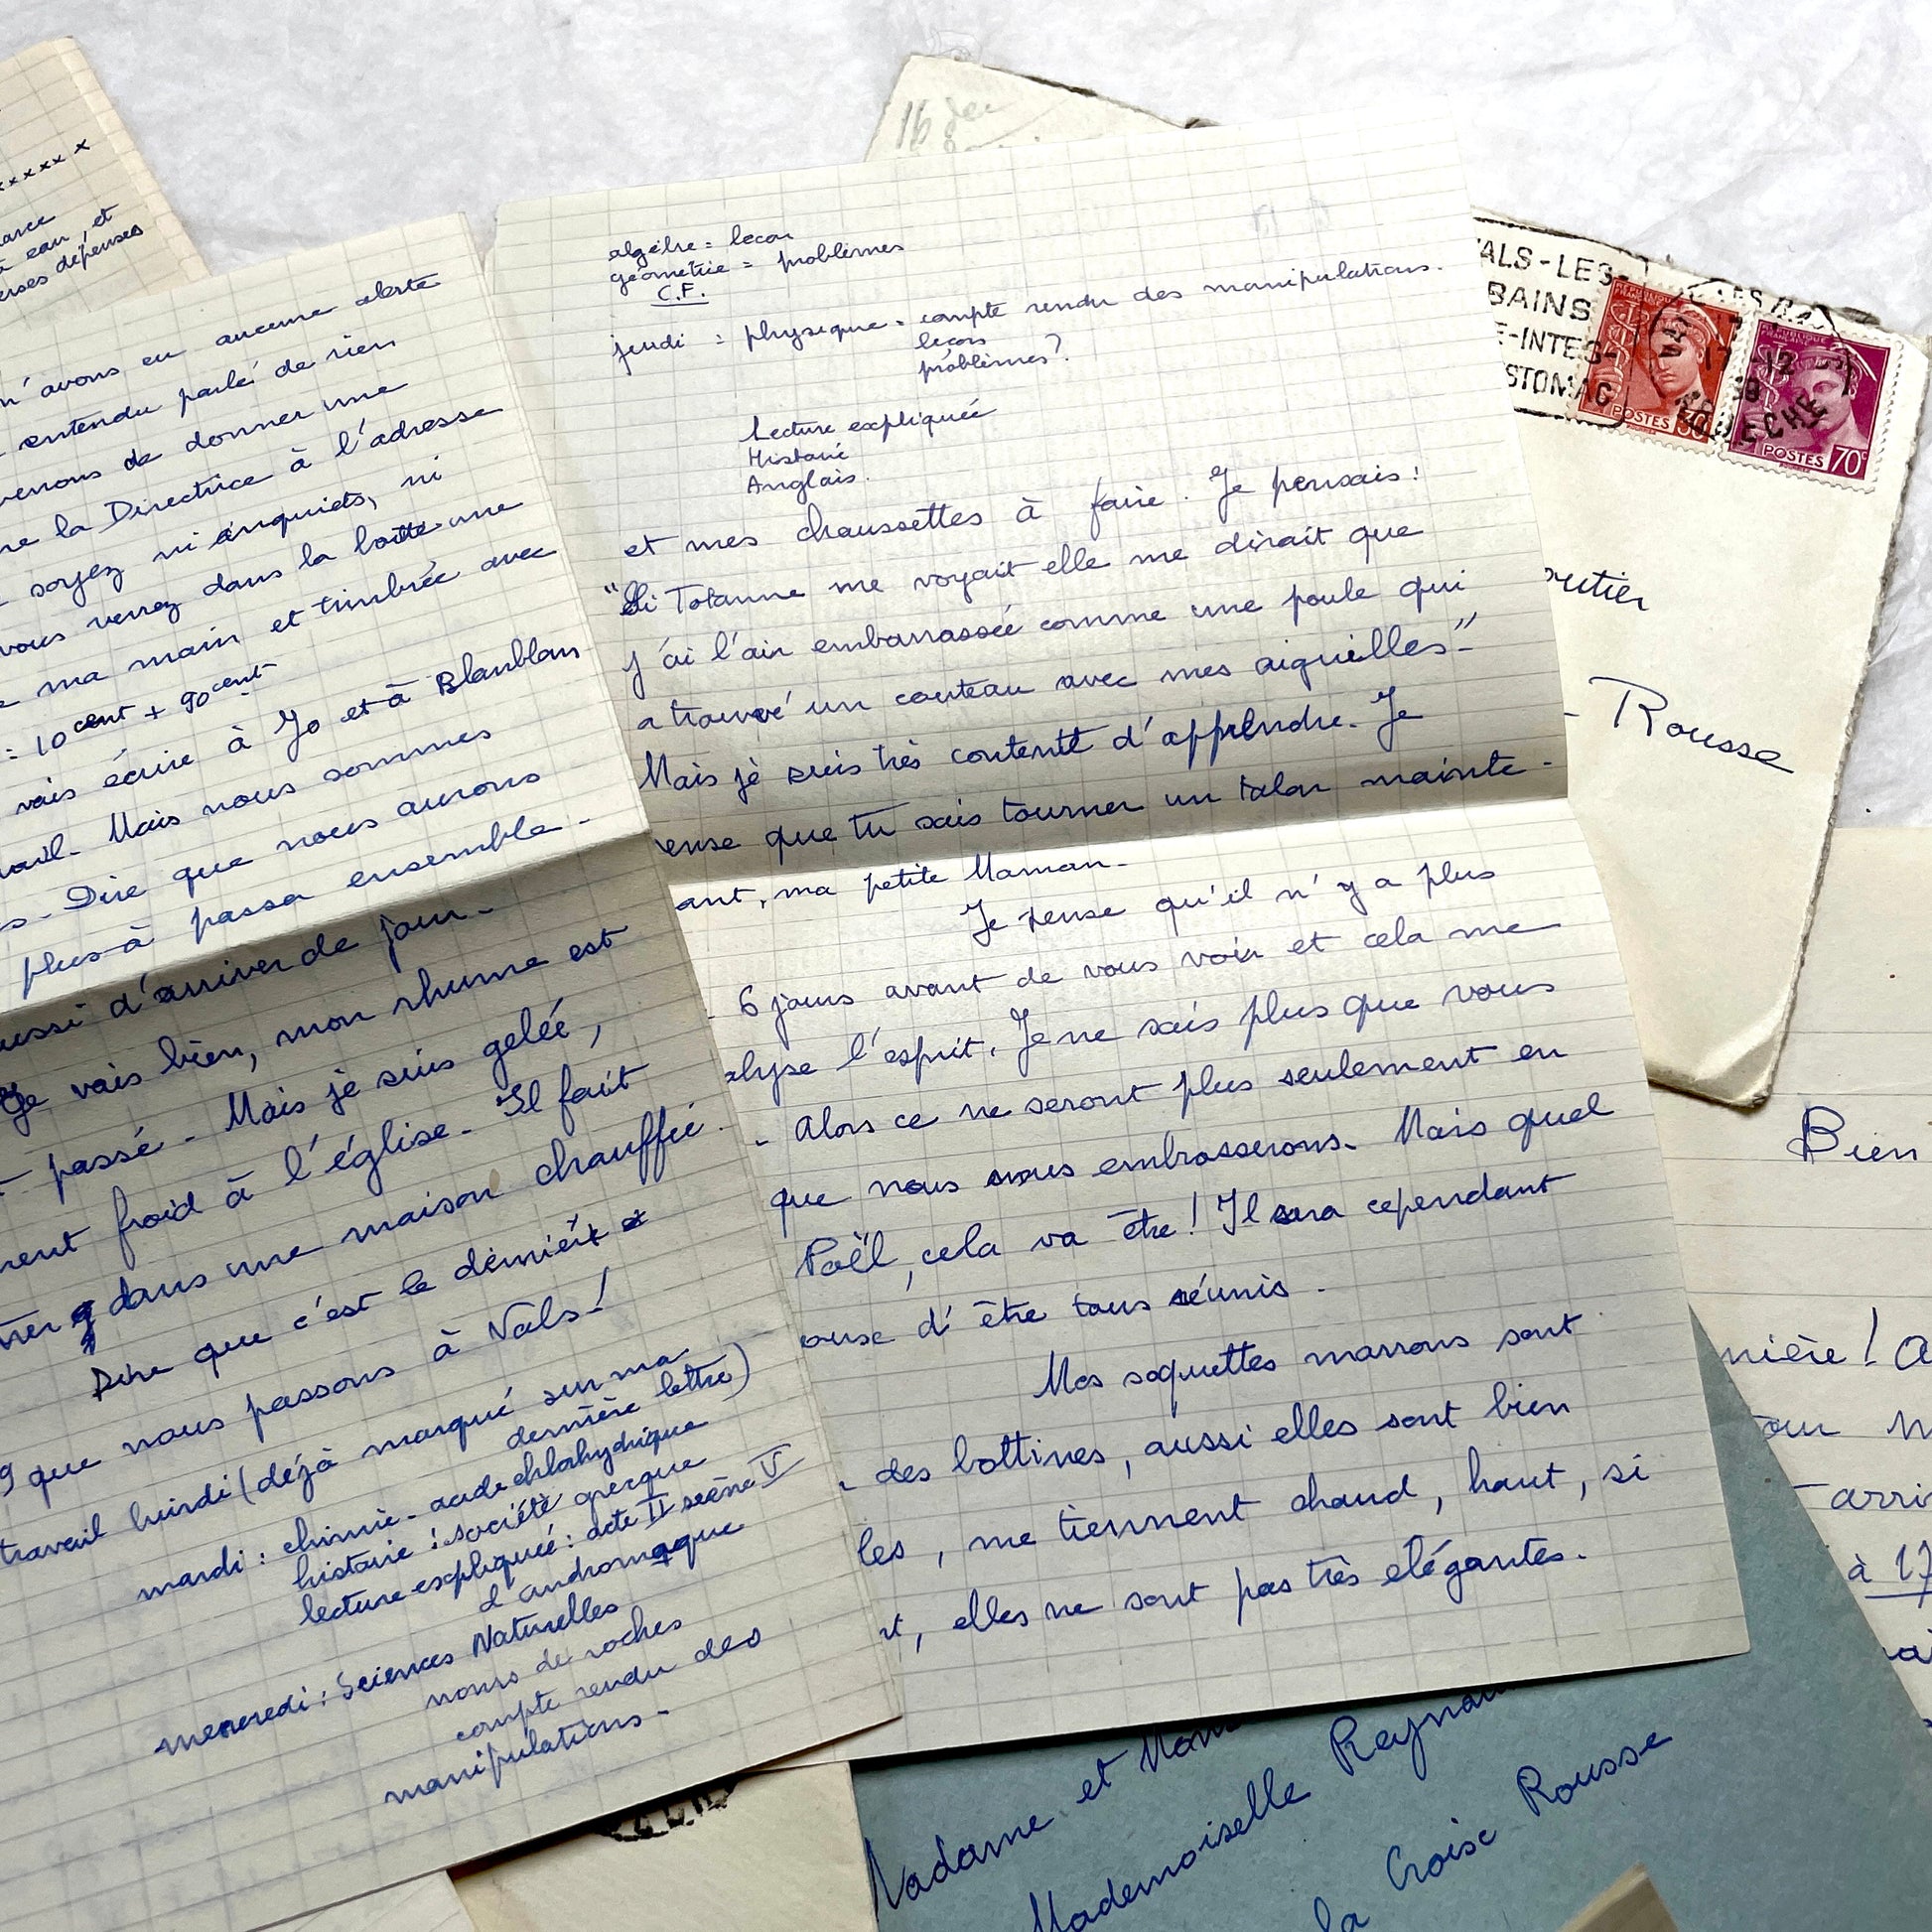 xxxxxx x
eau, et
dépenses
n'avons eu aucune alerte
entendu parlé de rien
venons de donner une
la Directrice à l'adresse
soyez ni inquiets, ni
vous verrez dans la boîtte une
ma main et timbrée avec
= 10 cent + 90 cent
vais écrire à Jo et à Blanblan
Mais nous sommes
Dire que nous aurons
plus à passer ensemble.
aussi d'arriver de jour.
Je vais bien, mon rhume est
passé - Mais je suis gelée,
froid à l'église. Il fait
dans une maison chauffée.
Dire que c'est le dernier
que nous passons à Vals!
travail lundi (déjà marqué sur ma
dernière lettre)
mardi : chimie - acide chlorhydrique
histoire : société grecque
lecture expliquée : acte II scène V
d'andromaque
mercredi : Sciences Naturelles
noms de roches
compte rendu des
manipulations.
algèbre = leçon
géométrie = problèmes
C.F.
jeudi : physique = compte rendu des manipulations.
leçons
problèmes?
Lecture expliquée
Histoire
Anglais.
et mes chaussettes à faire. Je pensais:
"Si Totanne me voyait elle me dirait que
j'ai l'air embarrassée comme une poule qui
a trouvé un couteau avec mes aiguilles" -
Mais je suis très contente d'apprendre. Je
pense que tu sais tourner un talon mainte-
ant, ma petite Maman.
Je pense qu'il n'y a plus
6 jours avant de vous voir et cela me
alyse l'esprit. Je ne sais plus que vous
- Alors ce ne seront plus seulement en
que nous nous embrasserons. Mais quel
Noël, cela va être! Il sera cependant
ouse d'être tous réunis.
Mes soquettes marrons sont
des bottines, aussi elles sont bien
les, me tiennent chaud, haut, si
t, elles ne sont pas très elégantes.
16
VALS-LES-
BAINS
E-INTES-
STOMAC
17 -12
39
ARDECHE
POSTES 30c
POSTES 70c
outier
- Rousse
Bien
nière! a
our
arri
à 17
Madame et
Mademoiselle Reynau
la Croix Rousse